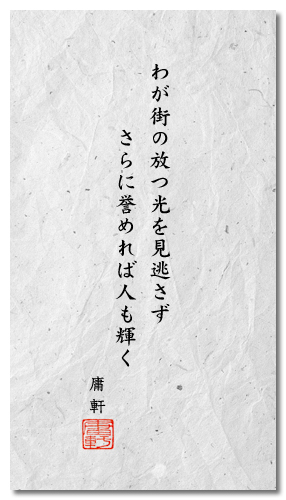 わが街の放つ光を見逃さず
さらに誉めれば人も輝く
庸軒
庸軒